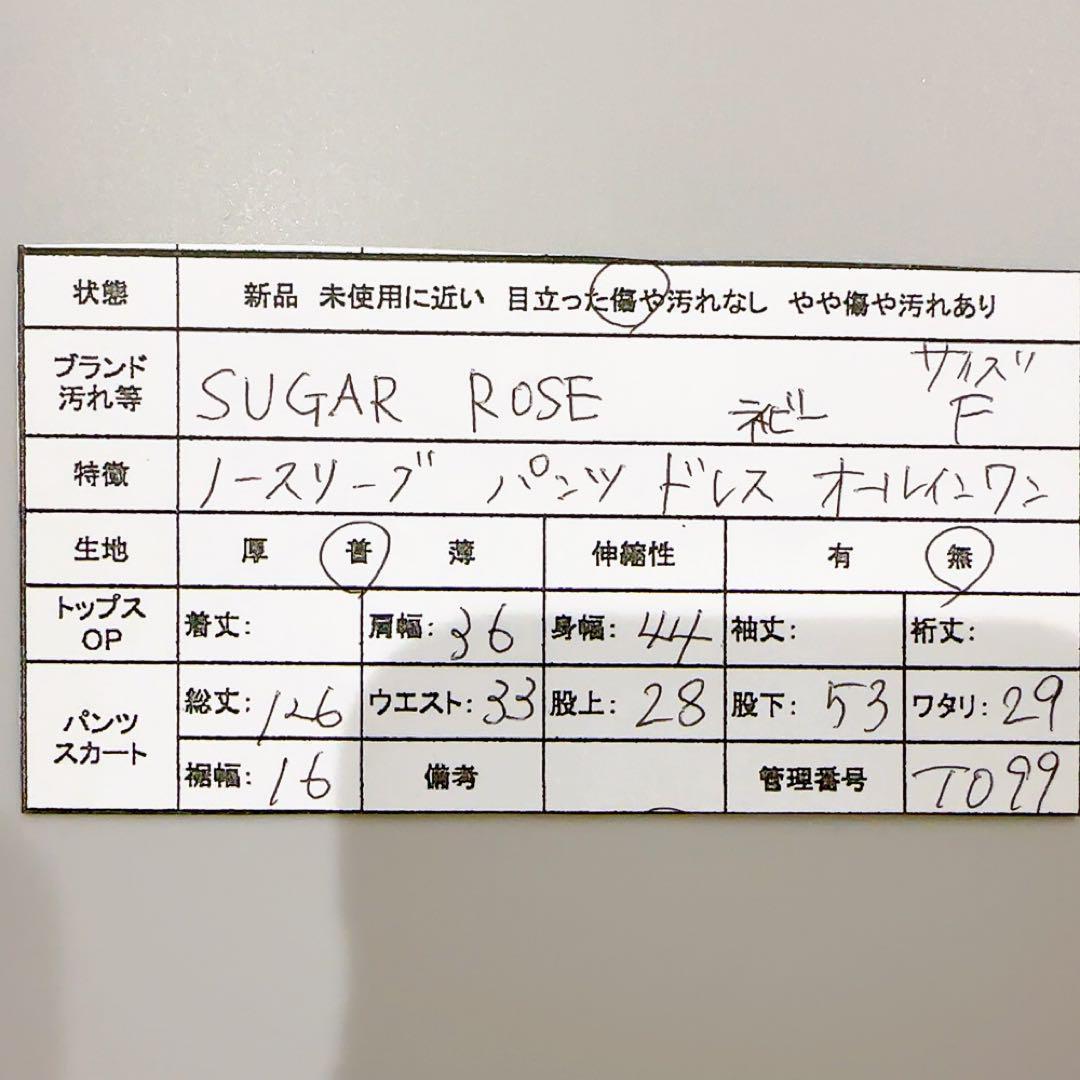 状態 新品 未使用に近い 目立った傷や汚れなし やや傷や汚れあり
ブランド 汚れ等 SUGAR ROSE ネビー サイズ F
特徴 ノースリーブ パンツ ドレス オールインワン
生地 厚 普 薄 伸縮性 有 無
トップス OP 着丈: 肩幅: 36 身幅: 44 袖丈: 裄丈:
パンツ スカート 総丈: 126 ウエスト: 33 股上: 28 股下: 53 ワタリ: 29
裾幅: 16 備考 管理番号 T099